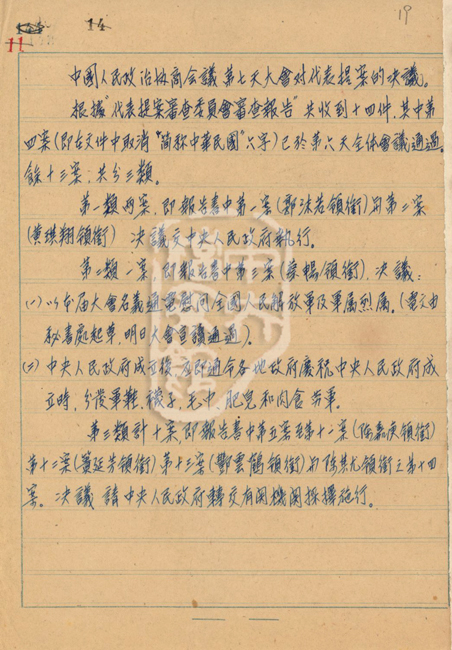 14
19
11
中國人民政治協商会議第七天大會对代表提案的决議。
根據"代表提案審查委員會審查報告"共收到十四件,其中第
四案(即在文件中取消"简称中華民國"六字)已於第六天全体會議通過。
餘十三案,共分三類。
第一類兩案,即報告書中第一案(郭沫若領銜)与第二案
(黄琪翔領銜) 决議交中央人民政府執行。
第二類一案,即報告書中第三案(領銜),决議:
(1)以本届大會名義通電慰问全國人民解放軍及軍属烈属。(電文由
秘書處起草,明日大會宣讀通過)。
(2)中央人民政府成立後,应即通令各地政府慶祝中央人民政府成
立時,分發軍鞋、襪子、毛巾、肥皂和肉食劳軍。
第三類計十案,即報告書中第五案至第十一案(陈嘉庚領銜)
第十二案(黄延芳領銜)第十三案(鄧雲鶴領銜)与陈其尤領銜之第十四
案。决議 請中央人民政府轉交有関機関採擇施行。